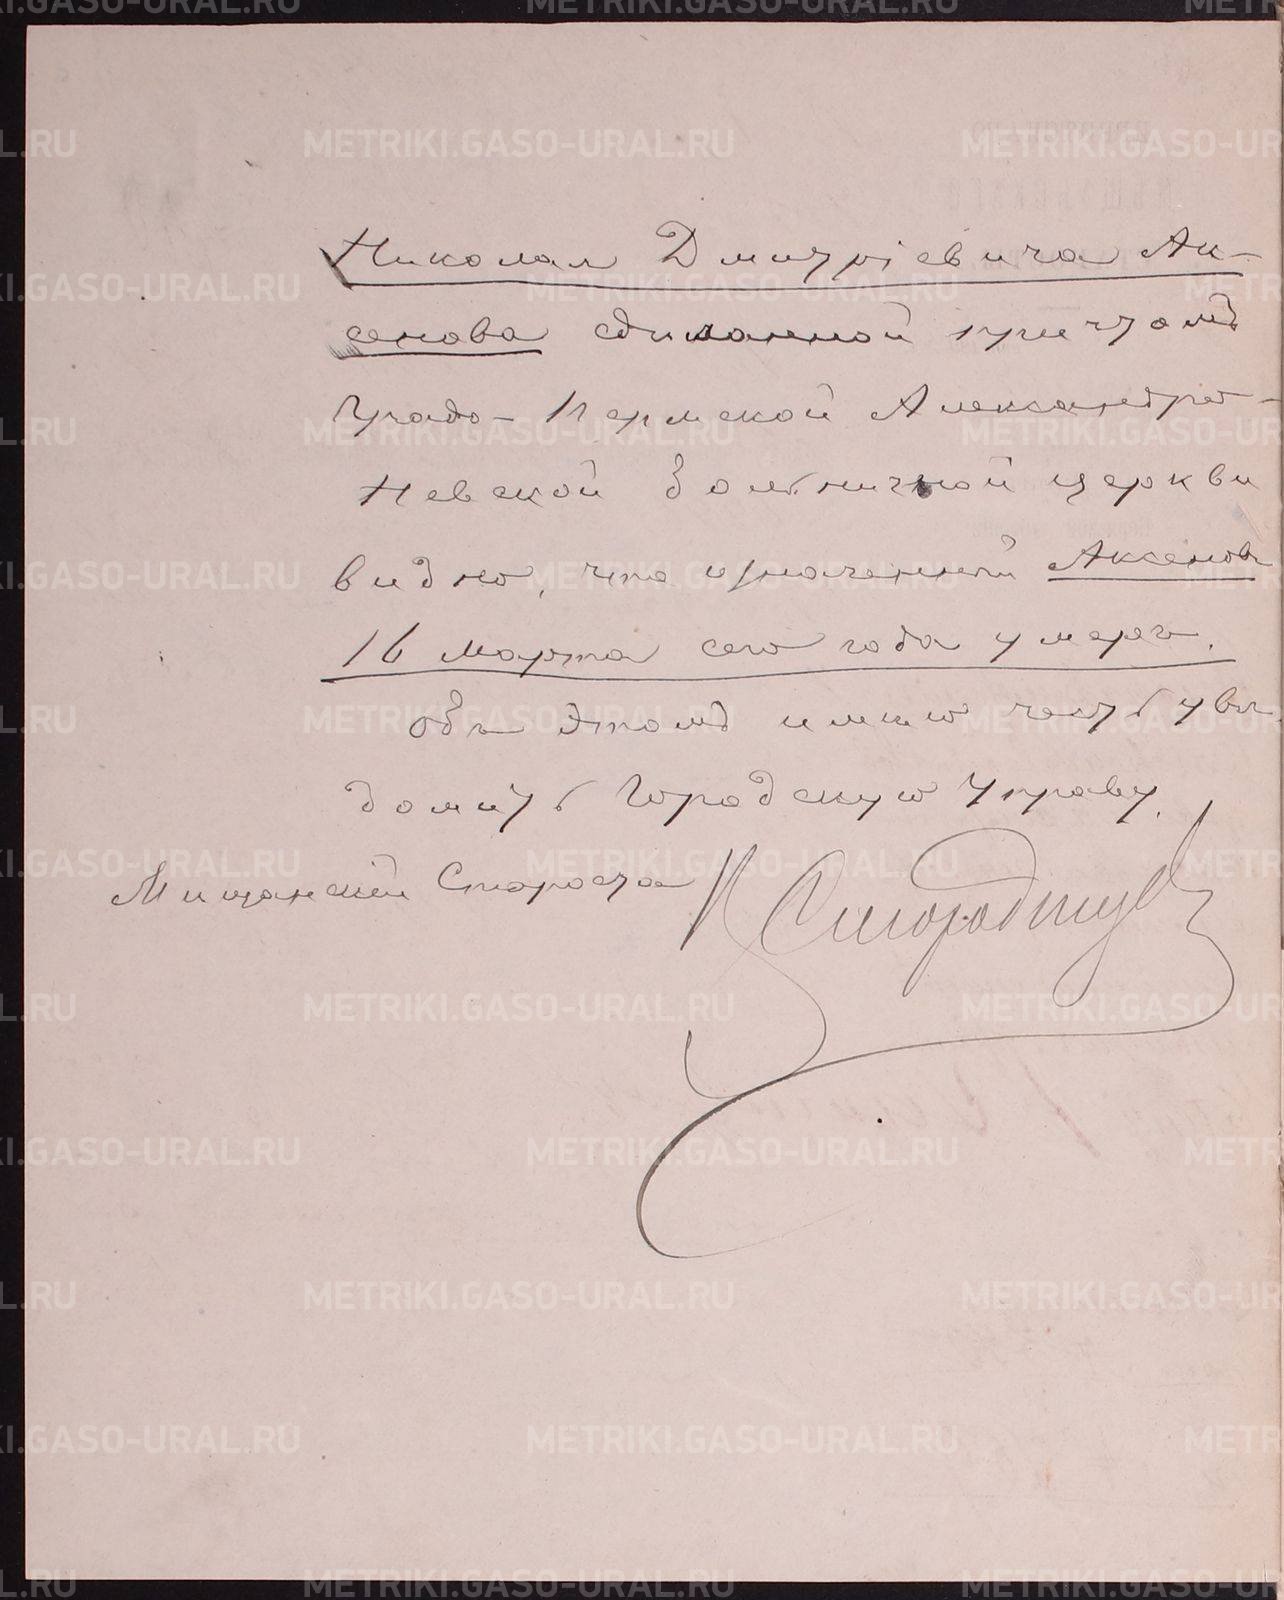 Николая Дмитріевича Ак-
сенова сдѣланной причтомъ
Градо-Пермской Александро-
Невской больничной церкви
видно, что означенный Аксеновъ
16 марта сего года умеръ.
Объ этомъ имѣю честь увѣ-
домить Городскую Управу.
Мѣщанскій Староста
METRIKI.GASO-URAL.RU